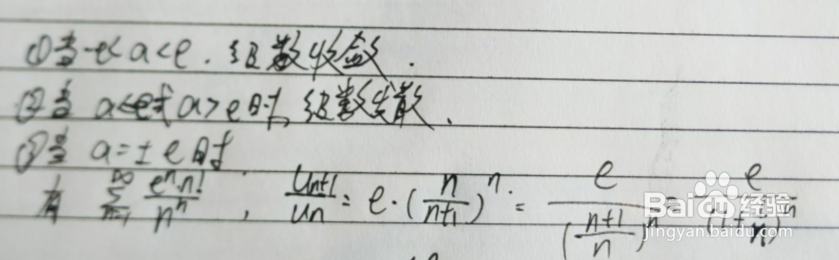 ①当-e<a<e.级数收敛.
②当 a<-e或a>e时,级数发散、
③当 a=±e时
有 ∑_{n=1}^{∞} e^n n!/n^n ; U_{n+1}/U_n = e·(n/(n+1))^n = e/((n+1)/n)^n = e/(1+1/n)^n
Bai 经验
jingyan.baidu.com